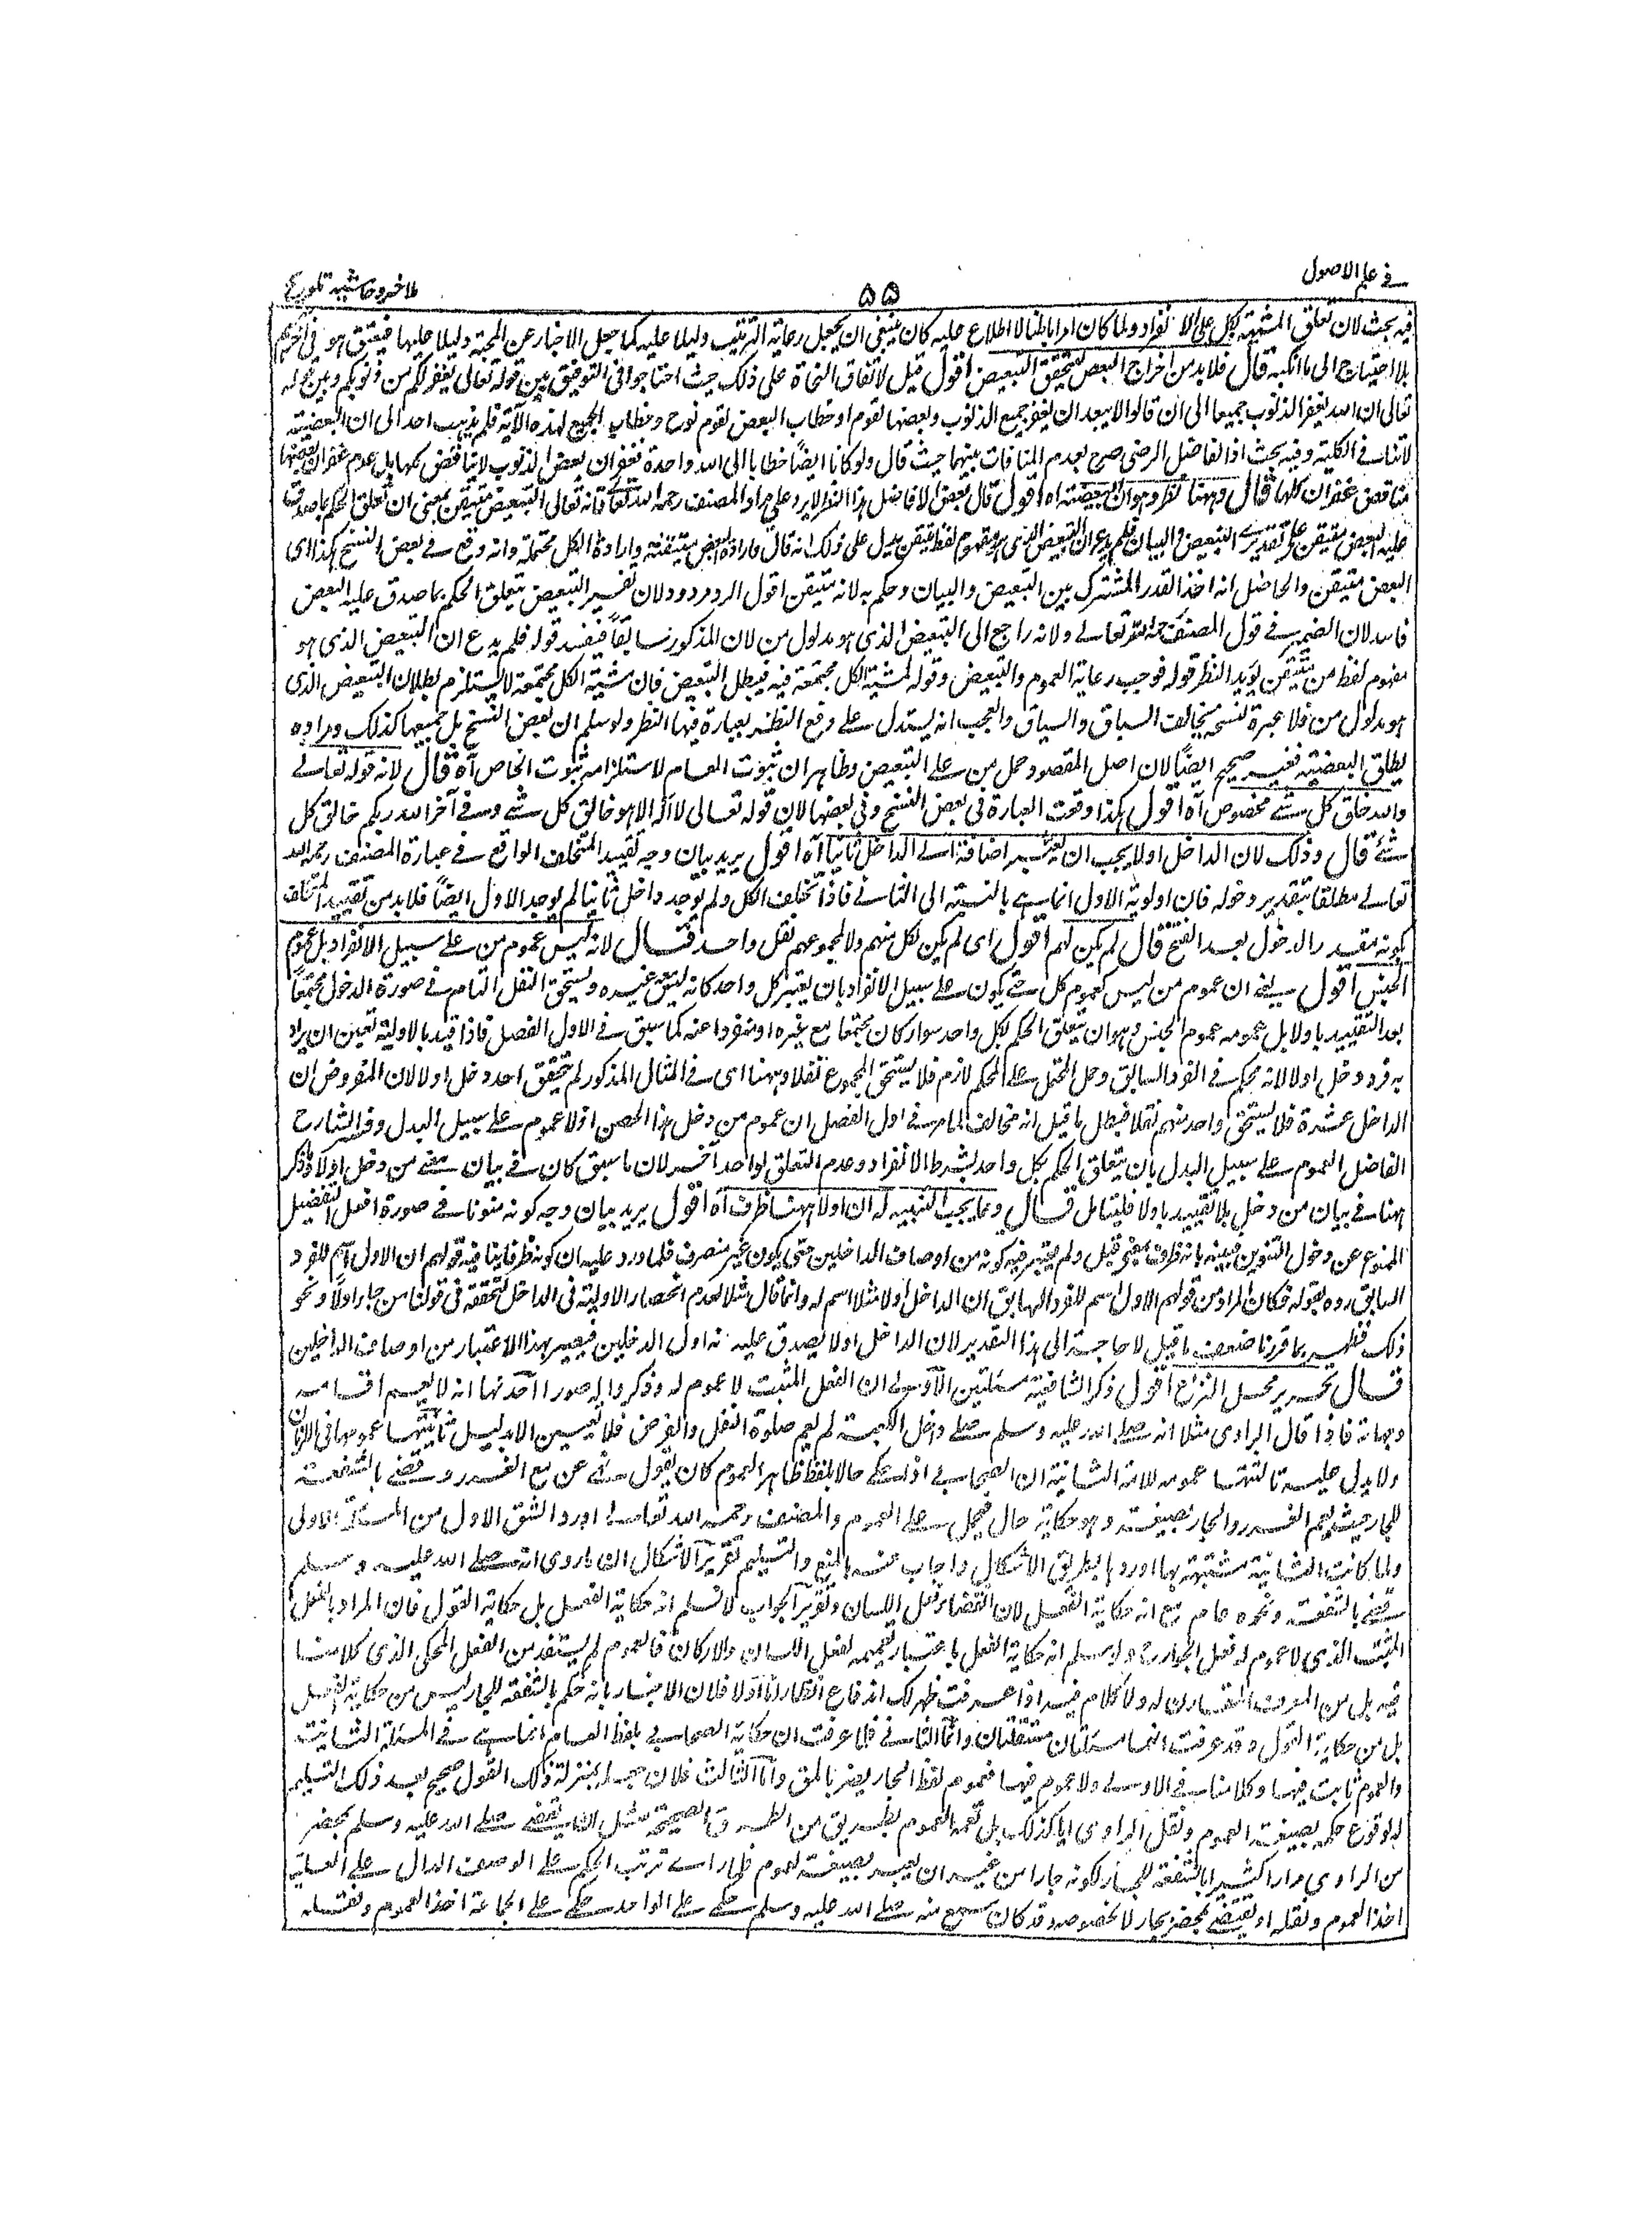 في علم الاصول
۵۵
ملا خسرو حاشية تلويح
فيه بحث لان تعلق المشية بكل على الانفراد ولما كان امرا باطنا لا اطلاع عليه كان ينبغي ان يجعل رعاية الترتيب دليلا عليه كما جعل الاخبار عن المحبة دليلا عليها فيعتق هو في آخرهم
بلا احتياج الى ما ارتكبه قال فلابد من اخراج البعض ليتحقق التبعيض اقول قيل لاتفاق النحاة على ذلك حيث احتاجوا في التوفيق بين قوله تعالى يغفر لكم من ذنوبكم وبين قوله
تعالى ان الله يغفر الذنوب جميعا الى ان قالوا لا يبعد ان يغفر جميع الذنوب وبعضها لقوم او خطاب البعض لقوم نوح وخطاب الجميع لهذه الآية فلم يذهب احد الى ان البعضية
لا تنافي الكلية وفيه بحث اذ الفاضل الرضي صرح بعدم المنافات بينهما حيث قال ولو كانا ايضا خطابا الى امة واحدة فغفران بعض الذنوب لا يناقض كلها بل عدم غفران بعضها
يناقض غفران كلها قال وههنا نظر وهو ان البعضية اه اقول قال بعض الافاضل هذا النظر لا يرد على مراد المصنف رحمه الله تعالى فانه تعالى التبعيض متيقن بمعنى ان تعلق الحكم بما صدق
عليه البعض متيقن على تقديري التبعيض والبيان فلم يدع ان التبعيض الذي هو مفهوم لفظ من متيقن يدل على ذلك انه قال فارادة البعض متيقنة وارادة الكل محتملة وانه وقع في بعض النسخ هكذا اى
البعض متيقن والحاصل انه اخذ القدر المشترك بين التبعيض والبيان وحكم به لانه متيقن اقول الرد مردود لان تفسير التبعيض بتعلق الحكم بما صدق عليه البعض
فاسد لان الضمير في قول المصنف رحمه الله تعالى ولانه راجع الى التبعيض الذي هو مدلول من لان المذكور سابقا فيفسد قوله فلم يدع ان التبعيض الذي هو
مفهوم لفظ من متيقن يؤيد النظر قوله فوجب رعاية العموم والتبعيض وقوله لمشية الكل مجتمعة فيه فيبطل التبعيض فان مشية الكل مجتمعة لا يستلزم بطلان التبعيض الذي
هو مدلول من فلا عبرة لنسخة يخالف السباق والسياق والعجب انه يستدل على دفع النظر بعبارة فيها النظر ولو سلم ان بعض النسخ بل جميعها كذلك ومراده
يطلق البعضية فغير صحيح ايضا لان اصل المقصود حمل من على التبعيض وظاهر ان ثبوت العام لا ستلزامه ثبوت الخاص آه قال لانه قوله تعالى
والله خالق كل شئ مخصوص آه اقول هكذا وقعت العبارة في بعض النسخ وفي بعضها لان قوله تعالى لا اله الا هو خالق كل شئ وفي آخر الله ربكم خالق كل
شئ قال وذلك لان الداخل اولا يجب ان يعتبر اضافته الى الداخل ثانيا آه اقول يريد بيان وجه تقييد المتخلف الواقع في عبارة المصنف رحمه الله
تعالى مطلقا بتقدير دخوله فان اولوية الاول انما هي بالنسبة الى الثاني فاذا تخلف الكل ولم يوجد داخل ثانيا لم يوجد الاول ايضا فلابد من تقييد المتخلف
بكونه مقدر الدخول بعد الفتح قال لم يكن لهم اقول اى لم يكن لكل منهم ولا لمجموعهم نفل واحد قال لانه ليس عموم من على سبيل الانفراد بل عموم
الجنس اقول يعني ان عموم من ليس كعموم كل حتى يكون على سبيل الانفراد بان يعتبر كل واحد كانه ليس معه غيره ويستحق النفل التام في صورة الدخول مجتمعا
بعد التقييد باولا بل عمومه عموم الجنس وهو ان يتعلق الحكم بكل واحد سواء كان مجتمعا مع غيره او منفردا عنه كما سبق في الاول الفصل فاذا قيد بالاولية تعين ان يراد
به فرد دخل اولا لانه محكم في الفرد السابق وحمل المحتمل على المحكم لازم فلا يستحق المجموع نفلا وههنا اى في المثال المذكور لم يتحقق احد دخل اولا لان المفروض ان
الداخل عشرة فلا يستحق واحد منهم نفلا فبطل ما قيل انه مخالف لما مر في اول الفصل ان عموم من دخل هذا الحصن اولا عموم على سبيل البدل وفسر الشارح
الفاضل العموم على سبيل البدل بان يتعلق الحكم بكل واحد بشرط الانفراد وعدم التعلق لواحد آخر لان ما سبق كان في بيان معنى من دخل اولا وما ذكر
ههنا في بيان من دخل بلا تقييد باولا فليتامل قال ومما يجب التنبيه له ان اولا ههنا ظرف آه اقول يريد بيان وجه كونه منونا في صورة افعل التفضيل
الممنوع عن دخول التنوين فبينه بانه ظرف بمعنى قبل ولم يعتبر فيه كونه من اوصاف الداخلين حتى يكون غير منصرف فلما ورد عليه ان كونه ظرفا ينافيه قولهم ان الاول اسم للفرد
السابق رده بقوله فكان المراد من قولهم الاول اسم للفرد السابق ان الداخل اولا مثلا اسم له وانما قال مثلا لعدم انحصار الاولية في الداخل لتحققه في قولنا من جاء اولا ونحو
ذلك فظهر بما قررنا ضعف ما قيل لا حاجة الى هذا التقدير لان الداخل اولا يصدق عليه انه اول الداخلين فيعتبر بهذا الاعتبار من اوصاف الداخلين
قال تحرير محل النزاع اقول ذكر الشافعية مسئلتين الاولى ان الفعل المثبت لا عموم له وذكروا له صورا احدها انه لا يعم اقسامه
وجهاته فاذا قال الراوي مثلا انه صلى الله عليه وسلم صلى داخل الكعبة لم يعم صلوة النفل والفرض فلا تعيين الا بدليل ثانيتها عمومها في الازمان
ولا يدل عليه ثالثتها عمومه للامة الثانية ان الصحابي اذا حكى حالا بلفظ ظاهر العموم كان يقول نهى عن بيع الغرر وقضى بالشفعة
للجار حيث يعم الغرر والجار بصيغته وهو حكاية حال فيحمل على العموم والمصنف رحمه الله تعالى اورد الشق الاول من المسئلة الاولى
ولما كانت الثانية مشتبهة بها اوردها بطريق الاشكال واجاب عنه بالمنع والتسليم تقرير الاشكال ان ما روى انه صلى الله عليه وسلم
قضى بالشفعة ونحوه عام مع انه حكاية الفعل لان القضاء فعل اللسان وتقرير الجواب لا نسلم انه حكاية الفعل بل حكاية القول فان المراد بالفعل
المثبت الذي لا عموم له فعل الجوارح ولو سلم انه حكاية الفعل باعتبار تعميمه لفعل اللسان والاركان فالعموم لم يستفد من الفعل المحكي الذي كلامنا
فيه بل من المعرف المقارن له ولا كلام فيه اذا عرفت ظهر لك اندفاع انظار اما اولا فلان الاخبار بانه حكم بالشفعة للجار ليس من حكاية الفعل
بل من حكاية القول وقد عرفت انهما مسئلتان متفقتان واما الثاني فلما عرفت ان حكاية الصحابي بلفظ العام انما هي في المسئلة الثانية
والعموم ثابت فيها وكلامنا في الاولى ولا عموم فيها فعموم لفظ الجار يضر بالحق واما الثالث فلان جعله بمنزلة ذلك القول صحيح بعد ذلك التسليم
لوقوع حكم بصيغة العموم ونقل الراوي اياه كذلك بل فهم العموم بطريق من الطرق الصحيحة مثل ان يقضى صلى الله عليه وسلم بمحضر
من الراوي مرارا كثيرا بالشفعة للجار لكونه جارا من غير ان يعبر بصيغة العموم فلما راى ترتب الحكم على الوصف الدال على العلية
اخذ العموم ونقله او يقضى بمحضره بجار لا بخصوصه وقد كان سمع منه صلى الله عليه وسلم حكمي على الواحد حكمي على الجماعة اخذ العموم ونقله